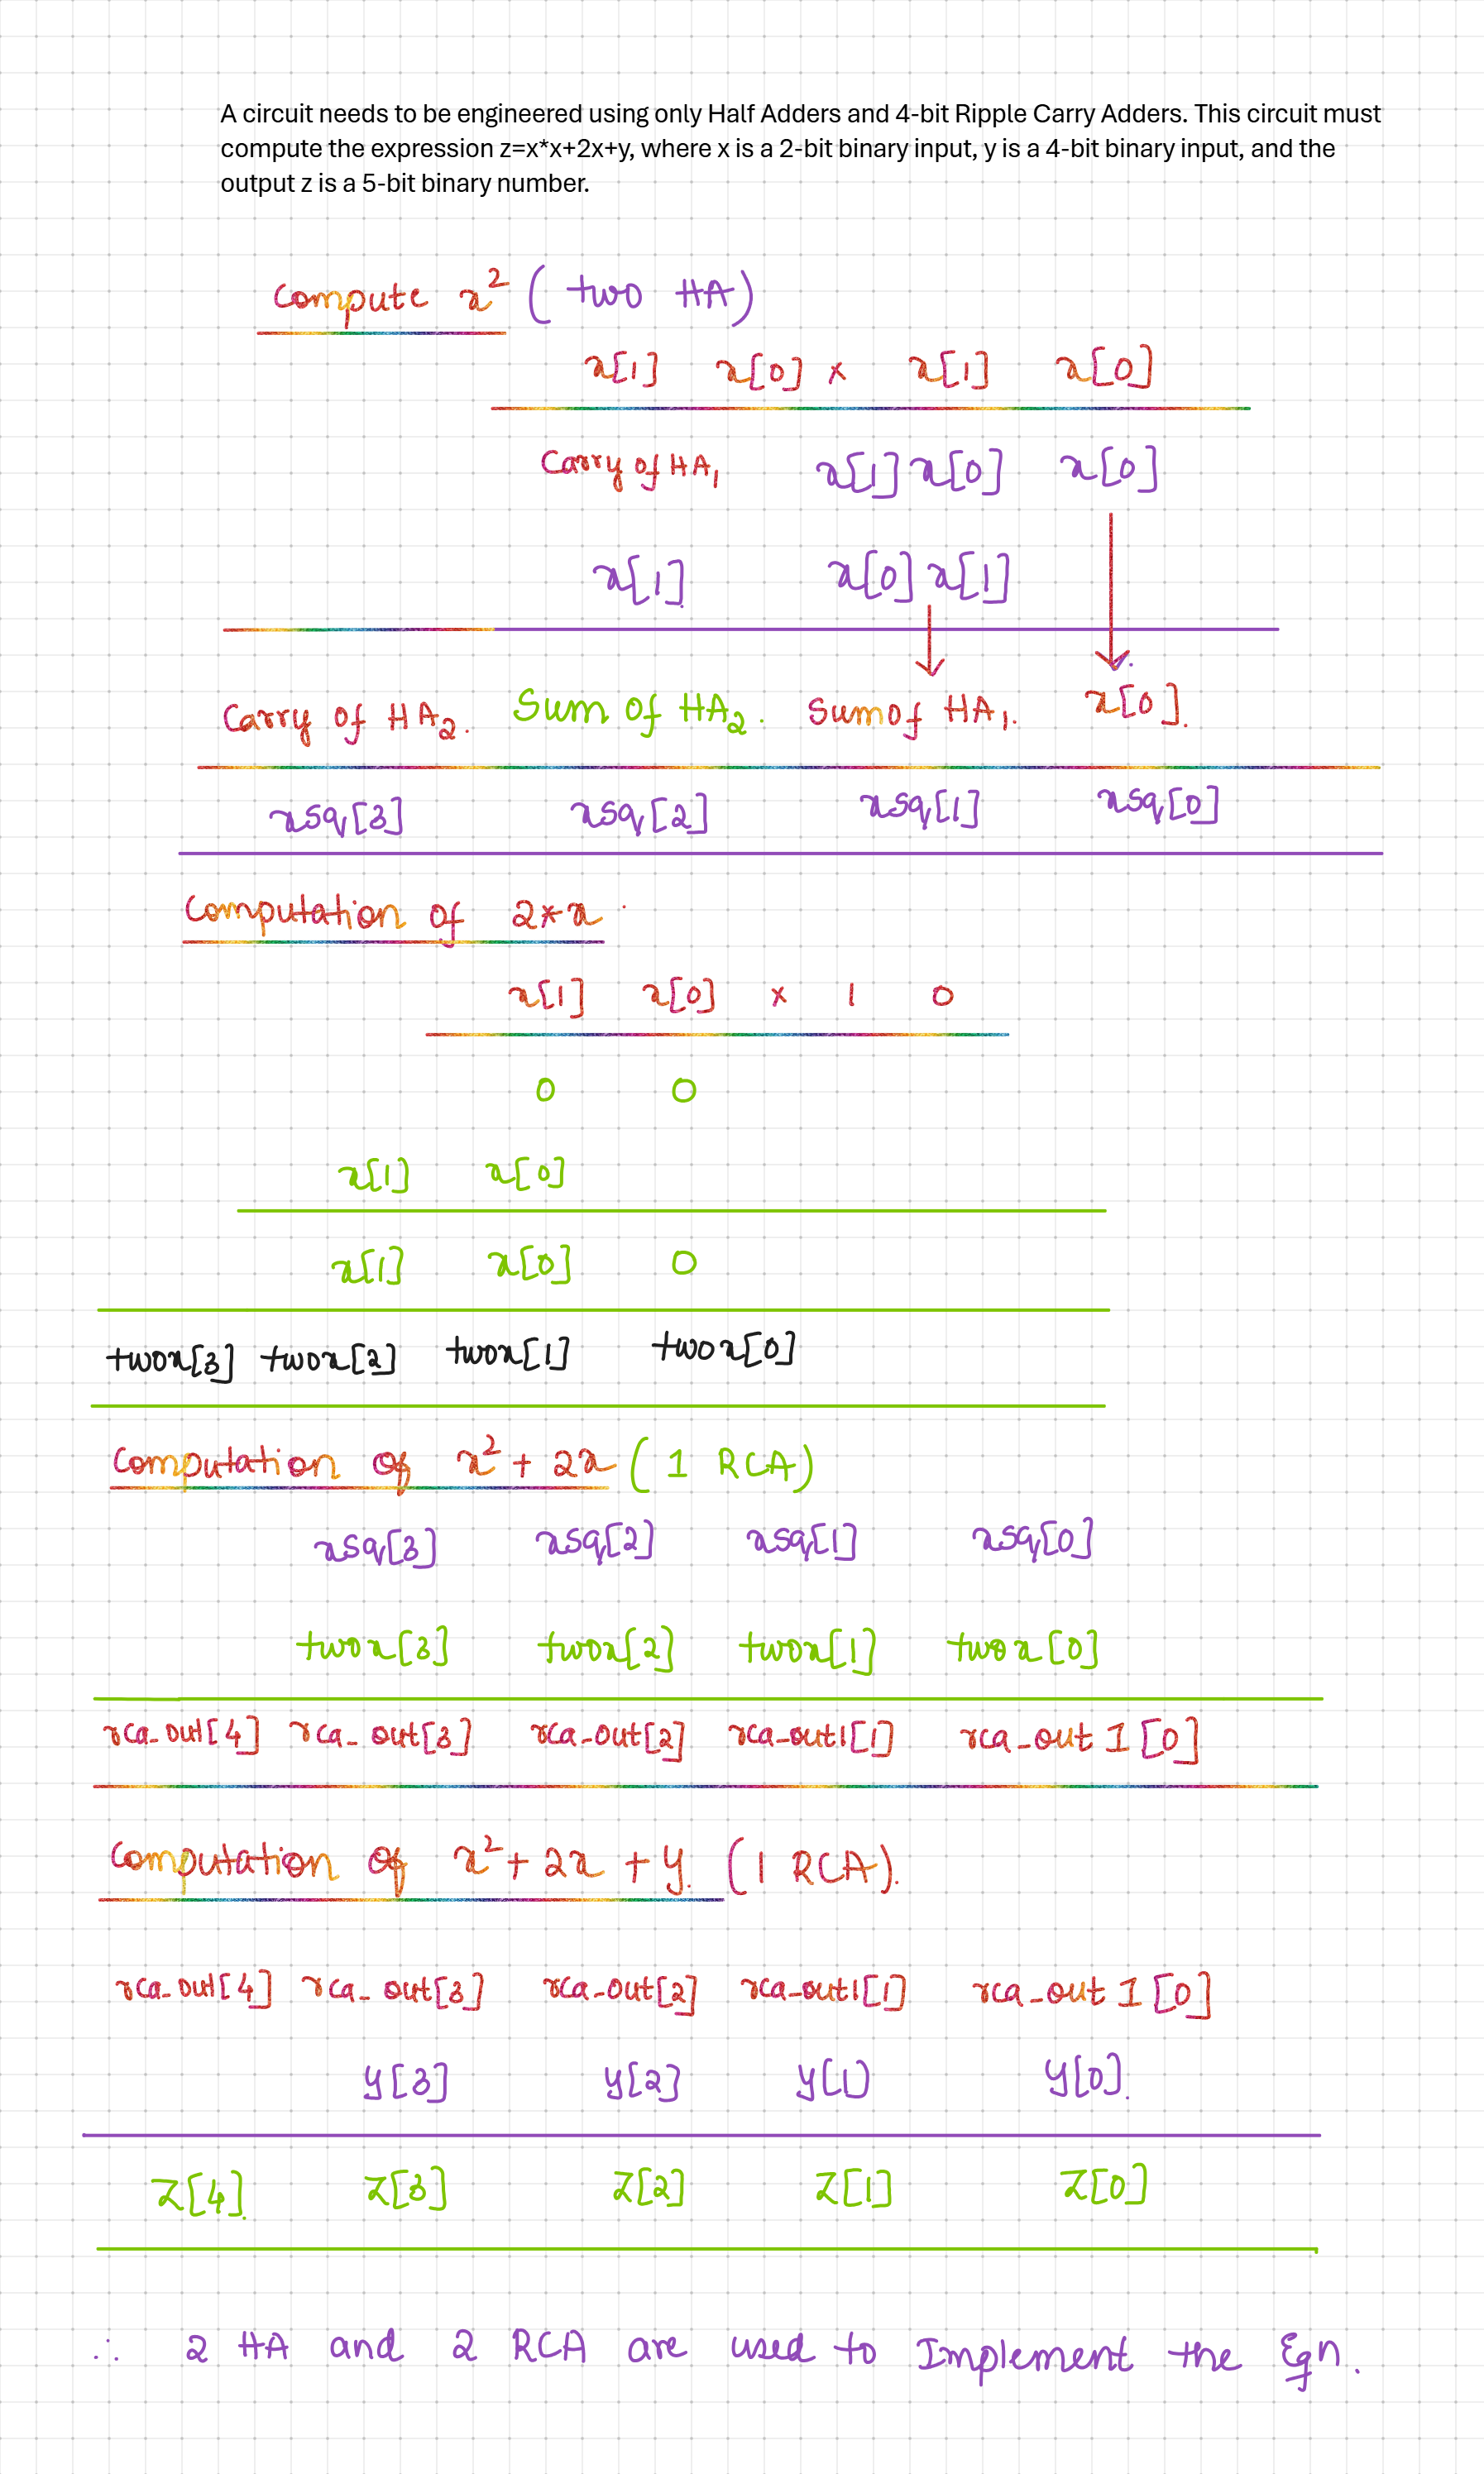 A circuit needs to be engineered using only Half Adders and 4-bit Ripple Carry Adders. This circuit must
compute the expression z=x*x+2x+y, where x is a 2-bit binary input, y is a 4-bit binary input, and the
output z is a 5-bit binary number.
Compute x² (two HA)
x[1] x[0] × x[1] x[0]
Carry of HA₁ x[1] x[0] x[0]
x[1] x[0] x[1]
Carry of HA₂. Sum of HA₂. Sum of HA₁. x[0].
xsq[3] xsq[2] xsq[1] xsq[0]
Computation of 2*x
x[1] x[0] × 1 0
0 0
x[1] x[0]
x[1] x[0] 0
twox[3] twox[2] twox[1] twox[0]
Computation of x² + 2x (1 RCA)
xsq[3] xsq[2] xsq[1] xsq[0]
twox[3] twox[2] twox[1] twox[0]
rca_out[4] rca_out[3] rca_out[2] rca_out1[1] rca_out1[0]
Computation of x² + 2x + y. (1 RCA).
rca_out[4] rca_out[3] rca_out[2] rca_out1[1] rca_out1[0]
y[3] y[2] y[1] y[0].
Z[4] Z[3] Z[2] Z[1] Z[0]
∴ 2 HA and 2 RCA are used to Implement the Eqn.